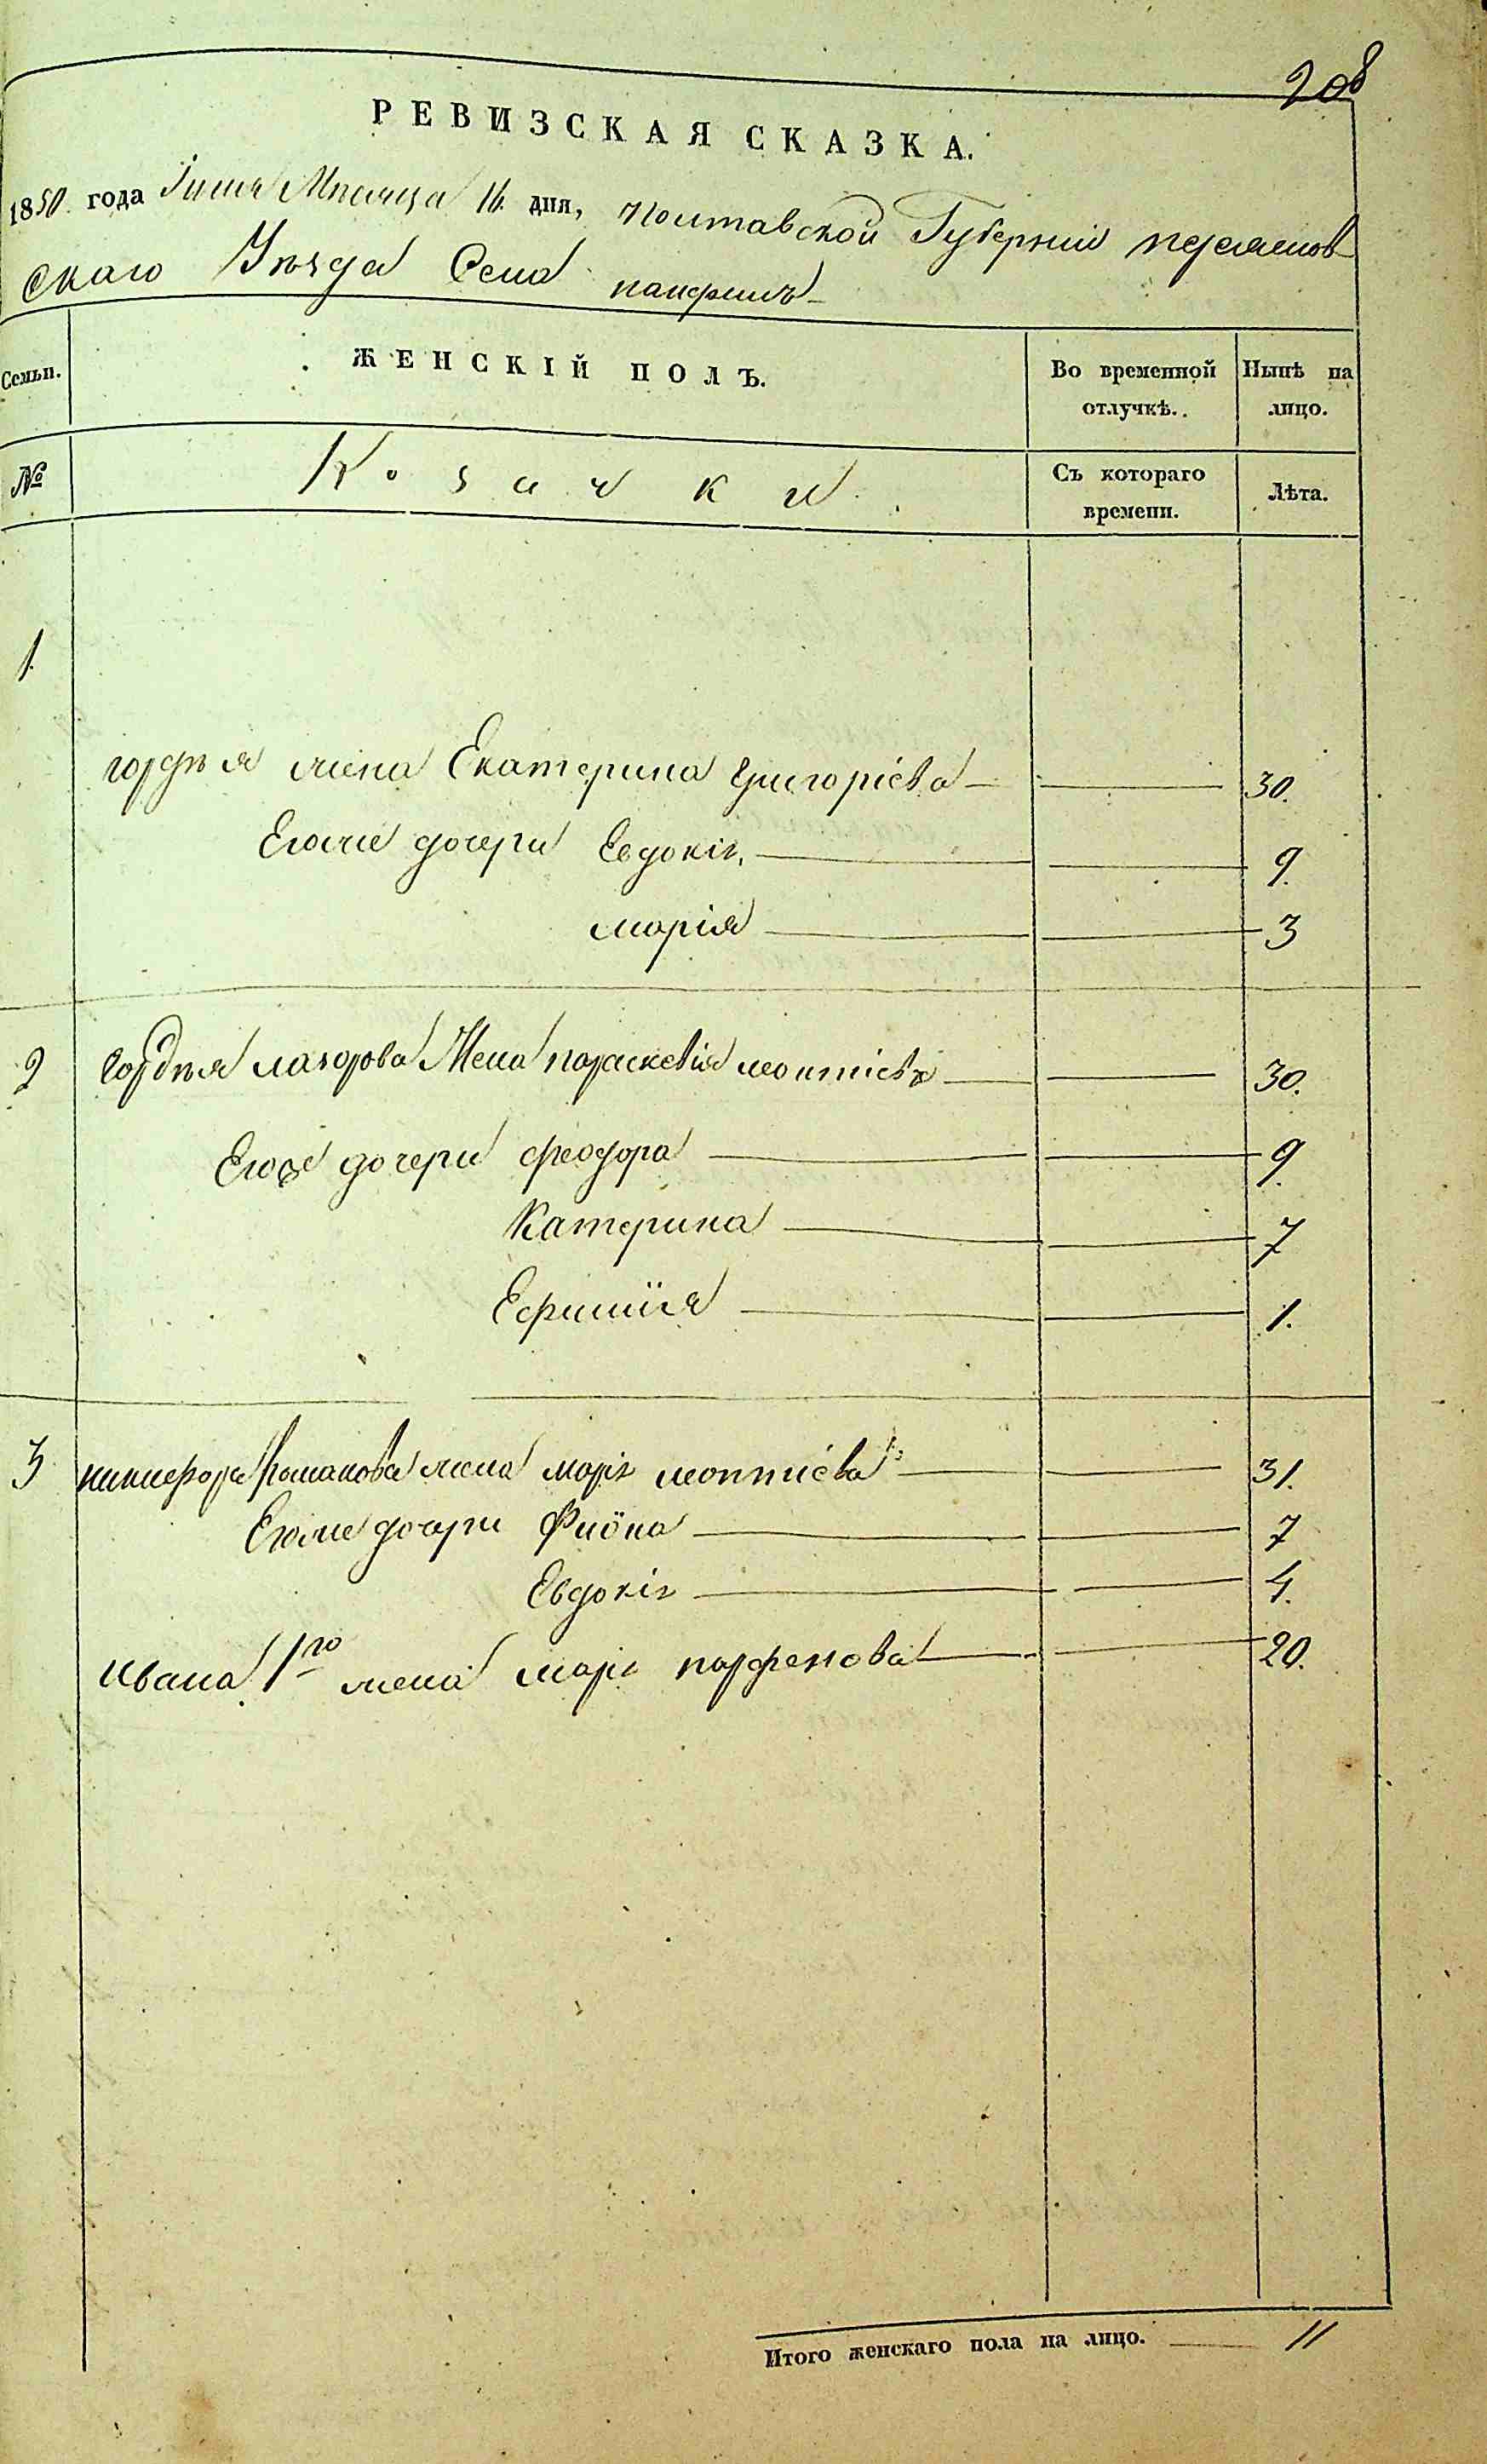 208
РЕВИЗСКАЯ СКАЗКА.
1850 года Іюня Мѣсяца 16 дня, Полтавской Губерніи переяслов
скаго Уѣзда Села панфилъ
Семьи. ЖЕНСКІЙ ПОЛЪ. Во временной отлучкѣ. Нынѣ на лицо.
№ Козачки Съ котораго времени. Лѣта.
1
гордѣя жена Екатерина Григоріева 30.
Егоже дочери Евдокія 9.
Марія 3
2 Гордѣя лазорова Жена параскевія леонтіева 30.
Егоже дочери феодора 9.
Катерина 7
Ефимія 1.
3 никифора романова жена марія леонтіева 31.
Егоже дочери Фіона 7
Евдокія 4.
Ивана 1го жена марія парфенова 20.
Итого женскаго пола на лицо. 11